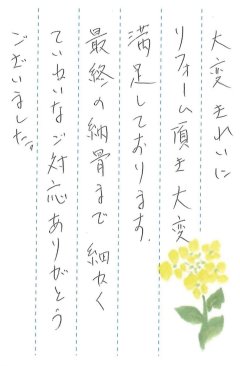 大変きれいに
リフォーム頂き大変
満足しております。
最終の納骨まで細かく
ていねいなご対応ありがとう
ございました。